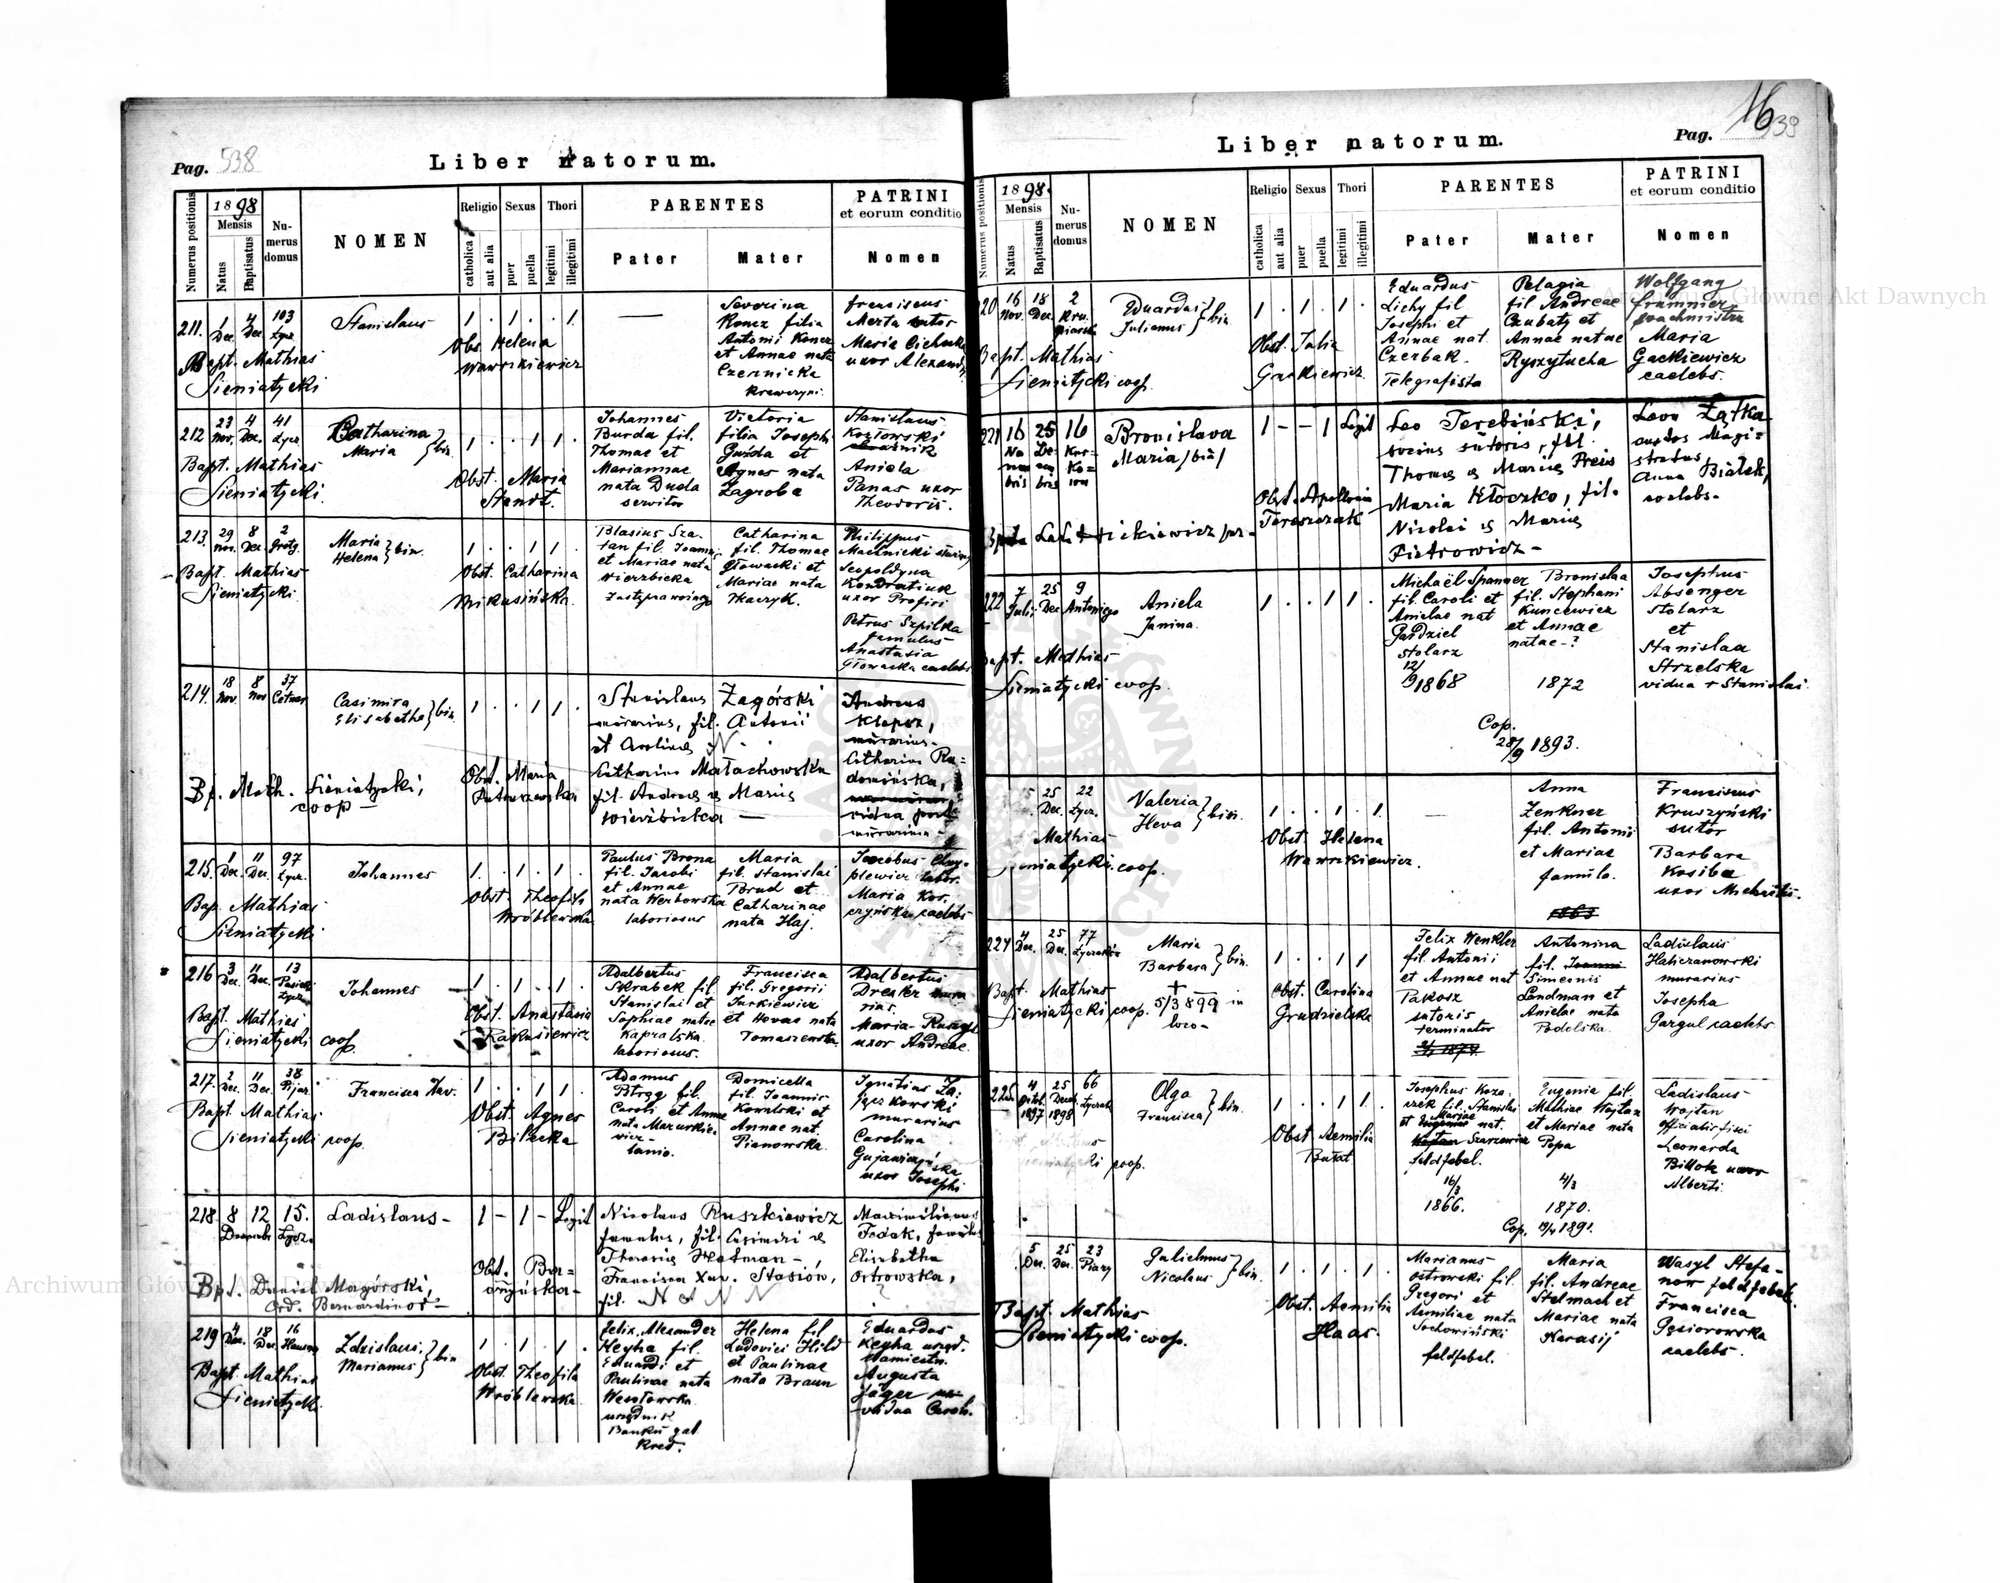 Pag. 538
Liber natorum.
Numerus positionis
1898
Mensis
Natus
Baptisatus
Numerus domus
NOMEN
Religio
catholica
aut alia
Sexus
puer
puella
Thori
legitimi
illegitimi
PARENTES
Pater
Mater
PATRINI
et eorum conditio
Nomen
211. 1 Dec. 4 Dec. 103 Łycz.
Stanislaus
1 . 1 . . 1
Bapt. Mathias
Sieniatycki
Obs. Helena
Wawrzkiewicz
Severina
Koncz filia
Antonii Koncz
et Annae nata
Czernicka
Franciscus
Merta sutor
Maria Cichocka
uxor Alexandri
212 23 Nov. 4 Dec. 41 Łycz.
Catharina
Maria } bin.
1 . . 1 1
Bapt. Mathias
Sieniatycki.
Obst. Maria
Stendt.
Johannes
Burda fil.
Thomae et
Mariannae
nata Duda
servitor
Victoria
filia Josephi
Guzda et
Agnes nata
Zagroba
Stanislaus
Kozłowski
Aniela
Panas uxor
Theodoris.
213. 29 Nov. 8 Dec. 2
Maria
Helena } bin.
1 . . 1 1 .
Bapt. Mathias
Sieniatycki.
Obst. Catharina
Mikusińska.
Blasius Sza-
tan fil. Joannis
et Mariae nata
Wierzbicka
Catharina
fil. Thomae
Głowacki et
Mariae nata
Tkaczyk.
Philippus
Leopoldyna
Kondratiuk
uxor Profiri
Petrus Szpilka
famulus
Anastasia
Głowacka caelebs
214. 18 Nov. 8 Nov 37
Casimira
Elisabetha } bin.
1 . . 1 1 .
Bp. Math. Sieniatycki,
coop -
Obst. Maria
Stanislaus Zagórski
murarius, fil. Antonii
et Carolinae N.
Catharina Małachowska
fil. Andreae & Mariae
Wierzbicka -
Andreas
Klapsz,
murarius -
Catharina Ra-
domińska,
vidua post
murarium -
215. 1 Dec. 11 Dec. 97 Łycz.
Johannes
1 . 1 . 1 .
Bap. Mathias
Sieniatycki
Obst. Theofila
Wróblewska
Paulus Brona
fil. Jacobi
et Annae
nata Werbowska
laboriosus
Maria
fil. Stanislai
Brud et
Catharinae
nata Haj.
Jacobus
labor.
Maria Kor-
czyńska caelebs
216 3 Dec. 11 Dec. 13
Johannes
1 . 1 . 1 .
Bapt. Mathias
Sieniatycki coop.
Obst. Anastasia
Rakusiewicz
Adalbertus
Skrabek fil
Stanislai et
Sophiae natae
Kapralska
laboriosus.
Francisca
fil. Gregorii
Jurkiewicz
et Hevae nata
Tomaszewska.
Adalbertus
Dresler mura
rius.
Maria
uxor Andreae.
217. 2 Dec. 11 Dec. 38 Pijar.
Francisca Xav.
1 . . 1 1 .
Bapt. Mathias
Sieniatycki coop.
Obst. Agnes
Bilecka
Adamus
fil.
Caroli et Annae
nata Mazurkie-
wicz -
lanio.
Domicella
fil. Joannis
Kowalski et
Annae nat.
Pianowska.
Ignatius
murarius
Carolina
uxor Josephi
218. 8 12 15.
Decemb. Łycz.
Ladislaus -
1 - 1 - Legit
Bpt. Daniel Magórski,
Ord. Bernardinor -
Obst.
Nicolaus Ruszkiewicz
famulus, fil. Casimiri &
Theresiae Hetman -
Francisca Xav. Stasiów,
fil. N & N N
Maximilianus
Fedak, famulus
Elisabetha
Ostrowska,
219 4 Dec. 18 Dec. 16
Zdzislaus,
Marianus } bin
1 . 1 . 1 .
Bapt. Mathias
Sieniatycki.
Obst. Theofila
Wróblewska
Felix Alexander
Heyha fil.
Eduardi et
Paulinae nata
Wesołowska
urzędnik
Banku gal
Kred.
Helena fil
Ludovici Hild
et Paulinae
nata Braun
Eduardus
Keyha urzęd.
Namiestn.
Augusta
Jäger
vidua Carol.
16
Pag. 539
Liber natorum.
Numerus positionis
1898.
Mensis
Natus
Baptisatus
Numerus domus
NOMEN
Religio
catholica
aut alia
Sexus
puer
puella
Thori
legitimi
illegitimi
PARENTES
Pater
Mater
PATRINI
et eorum conditio
Nomen
220 16 Nov. 18 Dec. 2
Eduardus
Julianus } bin.
1 . 1 . 1 .
Bapt. Mathias
Sieniatycki coop.
Obst. Julia
Gackiewicz.
Eduardus
Lichy fil
Josephi et
Annae nat
Czerbak.
Telegrafista
Pelagia
fil Andreae
Czubaty et
Annae natae
Ryszytucha
Wolfgang
wachmistrz
Maria
Gackiewicz
caelebs.
221 16 25 16
Bronislava
Maria /bin/
1 - - 1 Legit
Obst. Apollonia
Tereszczak
Leo Terebiński,
socius sutoris, fil
Thomae & Mariae Preis
Maria Kłoczko, fil.
Nicolai & Mariae
Pietrowicz -
Leon Łątka
custos Magi=
stratus
Anna Białek,
caelebs -
222 7 Juli. 25 Dec. 9 Antoniego
Aniela
Janina.
1 . . 1 1 .
Bapt. Mathias
Sieniatycki coop.
Michaël Spanner
fil. Caroli et
Anielae nat
Gardziel
stolarz
12/9 1868
Bronislaa
fil. Stephani
Kuncewicz
et Annae
natae - ?
1872
Cop.
28/9 1893.
Josephus
Absenger
stolarz
et
Stanislaa
Strzelska
vidua + Stanislai.
25 Dec. 22 Łycz.
Valeria
Heva } bin.
1 . . 1 . 1.
Mathias
Sieniatycki. coop.
Obst. Helena
Wawrzkiewicz.
Anna
Zenkner
fil. Antonii
et Mariae
famula.
1863
Franciscus
Kruszyński
sutor
Barbara
Kosiba
uxor
224 4 Dec. 25 Dec. 77
Maria
Barbara } bin.
+
5/3 899 in
loco -
1 . . 1 1
Bapt. Mathias
Sieniatycki coop.
Obst. Carolina
Grudzielska
Felix Wenkler
fil Antonii
et Annae nat
Pakosz
sutoris
terminator
Antonina
fil. Joanni
Simeonis
Landman et
Anielae nata
Podolska.
Ladislaus
Haliczanowski
murarius
Josepha
Gargul caelebs
225. 4 Octob. 1897 25 Decemb. 1898 66
Olga
Francisca } bin.
1 . . 1 1 .
coop.
Obst Aemilia
Butat
Josephus Koza-
czek fil. Stanislai
et Mariae nat.
feldfebel.
16/3
1866.
Eugenia fil.
Mathiae Wojtan
et Mariae nata
Popa
4/3
1870.
Cop. 1891.
Ladislaus
Wojtan
Leonarda
Billok uxor
Alberti.
5 Dec. 25 Dec. 23 Piary
Gulielmus
Nicolaus } bin.
1 . 1 . 1 .
Bapt Mathias
Sieniatycki coop.
Obst. Aemilia
Haas.
Marianus
Ostrowski fil.
Gregori et
Aemiliae nata
Sochowiński
feldfebel.
Maria
fil. Andreae
Stelmach et
Mariae nata
Karasij
Wasyl Stefa-
now feldfebel.
Francisca
Gąsiorowska
caelebs.
Archiwum Główne Akt Dawnych
Archiwum Główne Akt Dawnych